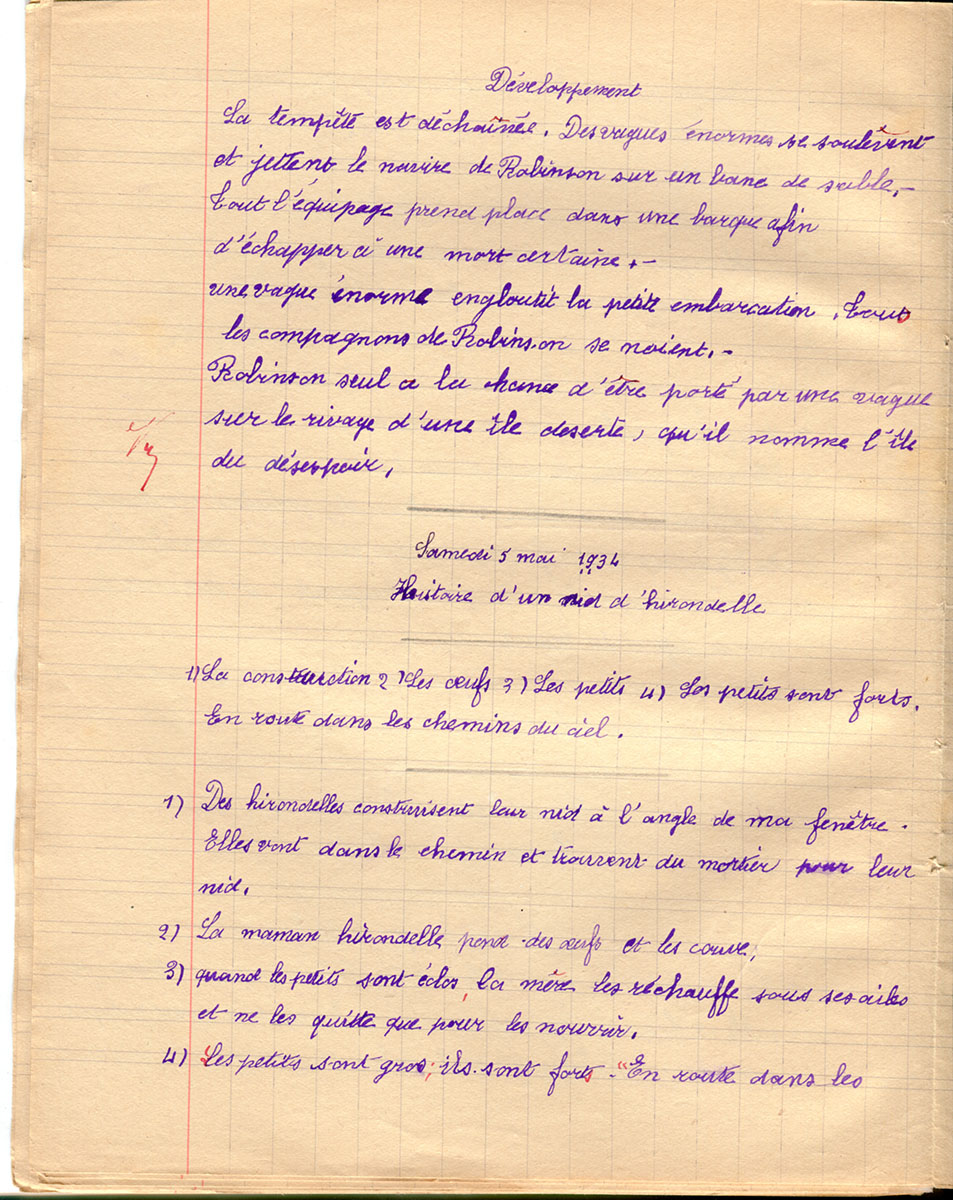 Développement
La tempête est déchaînée. Des vagues énormes se soulèvent
et jettent le navire de Robinson sur un banc de sable.-
Tout l'équipage prend place dans une barque afin
d'échapper à une mort certaine.-
une vague énorme engloutit la petite embarcation. Tous
les compagnons de Robinson se noient.-
Robinson seul a la chance d'être porté par une vague
sur le rivage d'une île deserte, qu'il nomme l'île
du désespoir.
Samedi 5 mai 1934
Histoire d'un nid d'hirondelle
1) La construction 2) Les œufs 3) Les petits 4) Les petits sont forts.
En route dans les chemins du ciel.
1) Des hirondelles construisent leur nid à l'angle de ma fenêtre.
Elles vont dans le chemin et trouvent du mortier pour leur
nid.
2) La maman hirondelle pond des œufs et les couve,
3) quand les petits sont éclos, la mère les réchauffe sous ses ailes
et ne les quitte que pour les nourrir.
4) Les petits sont gros; ils sont forts. "En route dans les